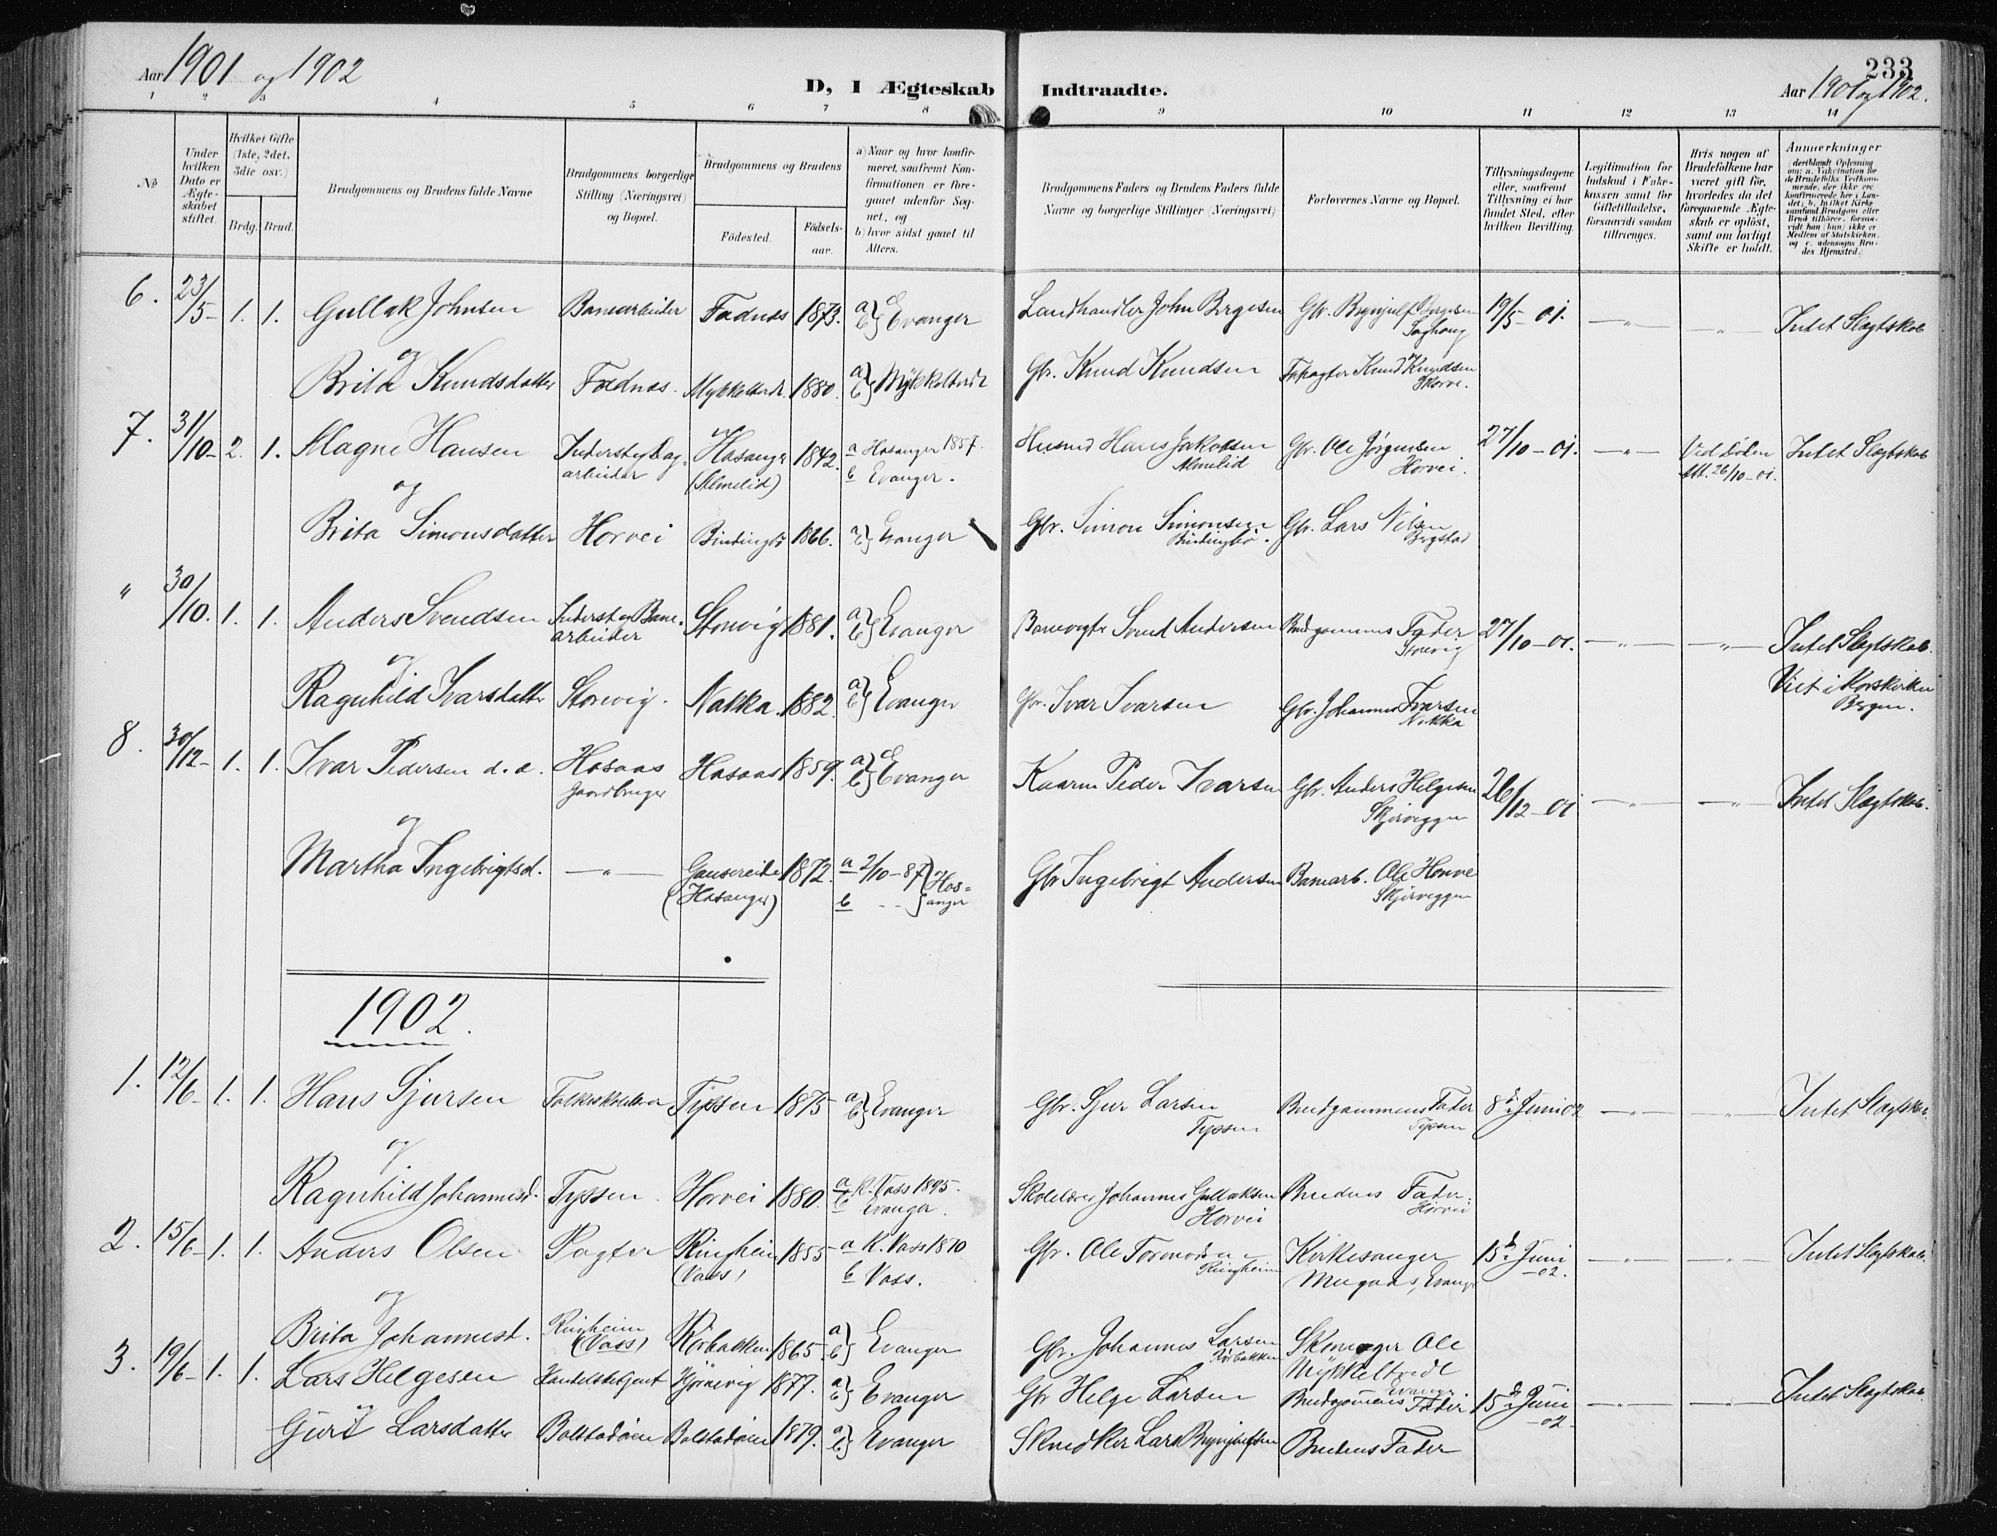 Aar 1901 og 1902
D, I Ægteskab Indtraadte.
233
Aar 1901 og 1902.
1 2 3 4 5 6 7 8 9 10 11 12 13 14
No
Under hvilken Dato er Ægteskabet stiftet.
Hvilket Gifte (1ste, 2det, 3die osv.)
Brdg. Brud.
Brudgommens og Brudens fulde Navne
Brudgommens borgerlige Stilling (Næringsvei) og Bopæl.
Brudgommens og Brudens
Fødested.
Fødselsaar.
a) Naar og hvor konfirmeret, saafremt Konfirmationen er foregaaet udenfor Sognet, og
b) hvor sidst gaaet til Alters.
Brudgommens Faders og Brudens Faders fulde Navne og borgerlige Stillinger (Næringsvei)
Forlovernes Navne og Bopæl.
Tillysningsdagene eller, saafremt Tillysning ei har fundet Sted, efter hvilken Bevilling.
Legitimation for Indskud i Fakekassen samt for Giftetilladelse, forsaavidt saadan tiltrænges.
Hvis nogen af Brudefolkene har været gift før, hvorledes da det foregaaende Ægteskab er opløst, samt om lovligt Skifte er holdt.
Anmærkninger
6. 23/5- 1. 1. Gullak Johnsen Banearbeider Fadnæs 1873. a b } Evanger Landhandler John Bergesen Gbr. Brynjulf Bergesen 19/5-01. -"- -"- Intet Slægtskab
og
Brita Knudsdatter Fadnæs. Mykkeltvedt. 1880. a b } Mykkeltvedt Gbr. Knud Knudsen Knud Knudsen Horvei.
7. 31/10- 2. 1. Magne Hansen Inderst og Dagarbeider Hosanger (Almelid) 1842. a Hosanger 1857. b Evanger. Husmd Hans Jakobsen Almelid Gbr. Ole Jørgensen Horvei. 27/10-01. -"- Ved Døden Att. 26/10-01. Intet Slægtskab
og
Brita Simonsdatter Horvei Bindingbø 1866. a b } Evanger Gbr. Simon Simonsen Bindingbø. Gbr. Lars Nilsen Bergstad
" 30/10. 1. 1. Anders Svendsen Inderst og Banearbeider Storvig 1881. a b } Evanger Banevogter Svend Andersen Brudgommens Fader Storvig 27/10-01. -"- -"- Intet Slægtskab.
og
Ragnhild Ivarsdatter Storvig. Nakka. 1882. a b } Evanger Gbr. Ivar Ivarsen Gbr. Johannes Ivarsen Nakka Viet i Korskirken Bergen.
8. 30/12- 1. 1. Ivar Pedersen d. a. Hosaas Gaardbruger Hosaas 1859. a b } Evanger Kaarm. Peder Ivarsen Gbr. Anders Helgesen Skjerveggen 26/12-01 -"- -"- Intet Slægtskab.
og
Martha Ingebrigtsd. -"- Gausereide (Hosanger) 1872. a 2/10-87 b - - } Hosanger Gbr Ingebrigt Andersen Banarb. Ole Horvei Skjerveggen
1902.
1. 12/6- 1. 1. Hans Sjursen Typsen 1875 a b } Evanger Gbr. Sjur Larsen Typsen Brudgommens Fader Typsen 8de Juni 02 -"- -"- Intet Slægtskab
og
Ragnhild Johannesd. Typsen. Horvei 1880. a K. Vass 1895. b Evanger. Skolelærer Johannes Gullaksen Horvei Brudens Fader. Horvei
2. 15/6- 1. 1. Anders Olsen Pagter Ringheim (Vass) 1855 a K. Vass 1870 b Vass. Gbr. Ole Ringheim Kirkesanger Mugaas, Evanger 15de Juni -02. -"- -"- Intet Slægtskab
og
Brita Johannesd. Ringheim (Vass) Kørbakken 1865. a b } Evanger Gbr. Johannes Larsen Kørbakken Skomager Ole Mykkeltvedt Evanger
3. 19/6- 1. 1. Lars Helgesen Handelsbetjent Hjørnevig 1877. a b } Evanger Gbr Helge Larsen Brudgommens Fader 15de Juni -02. -"- -"- Intet Slægtskab
og
Guri Larsdatter Bolstadøen Bolstadøen 1879. a b } Evanger Skrædker Lars Brynjulfsen Brudens Fader